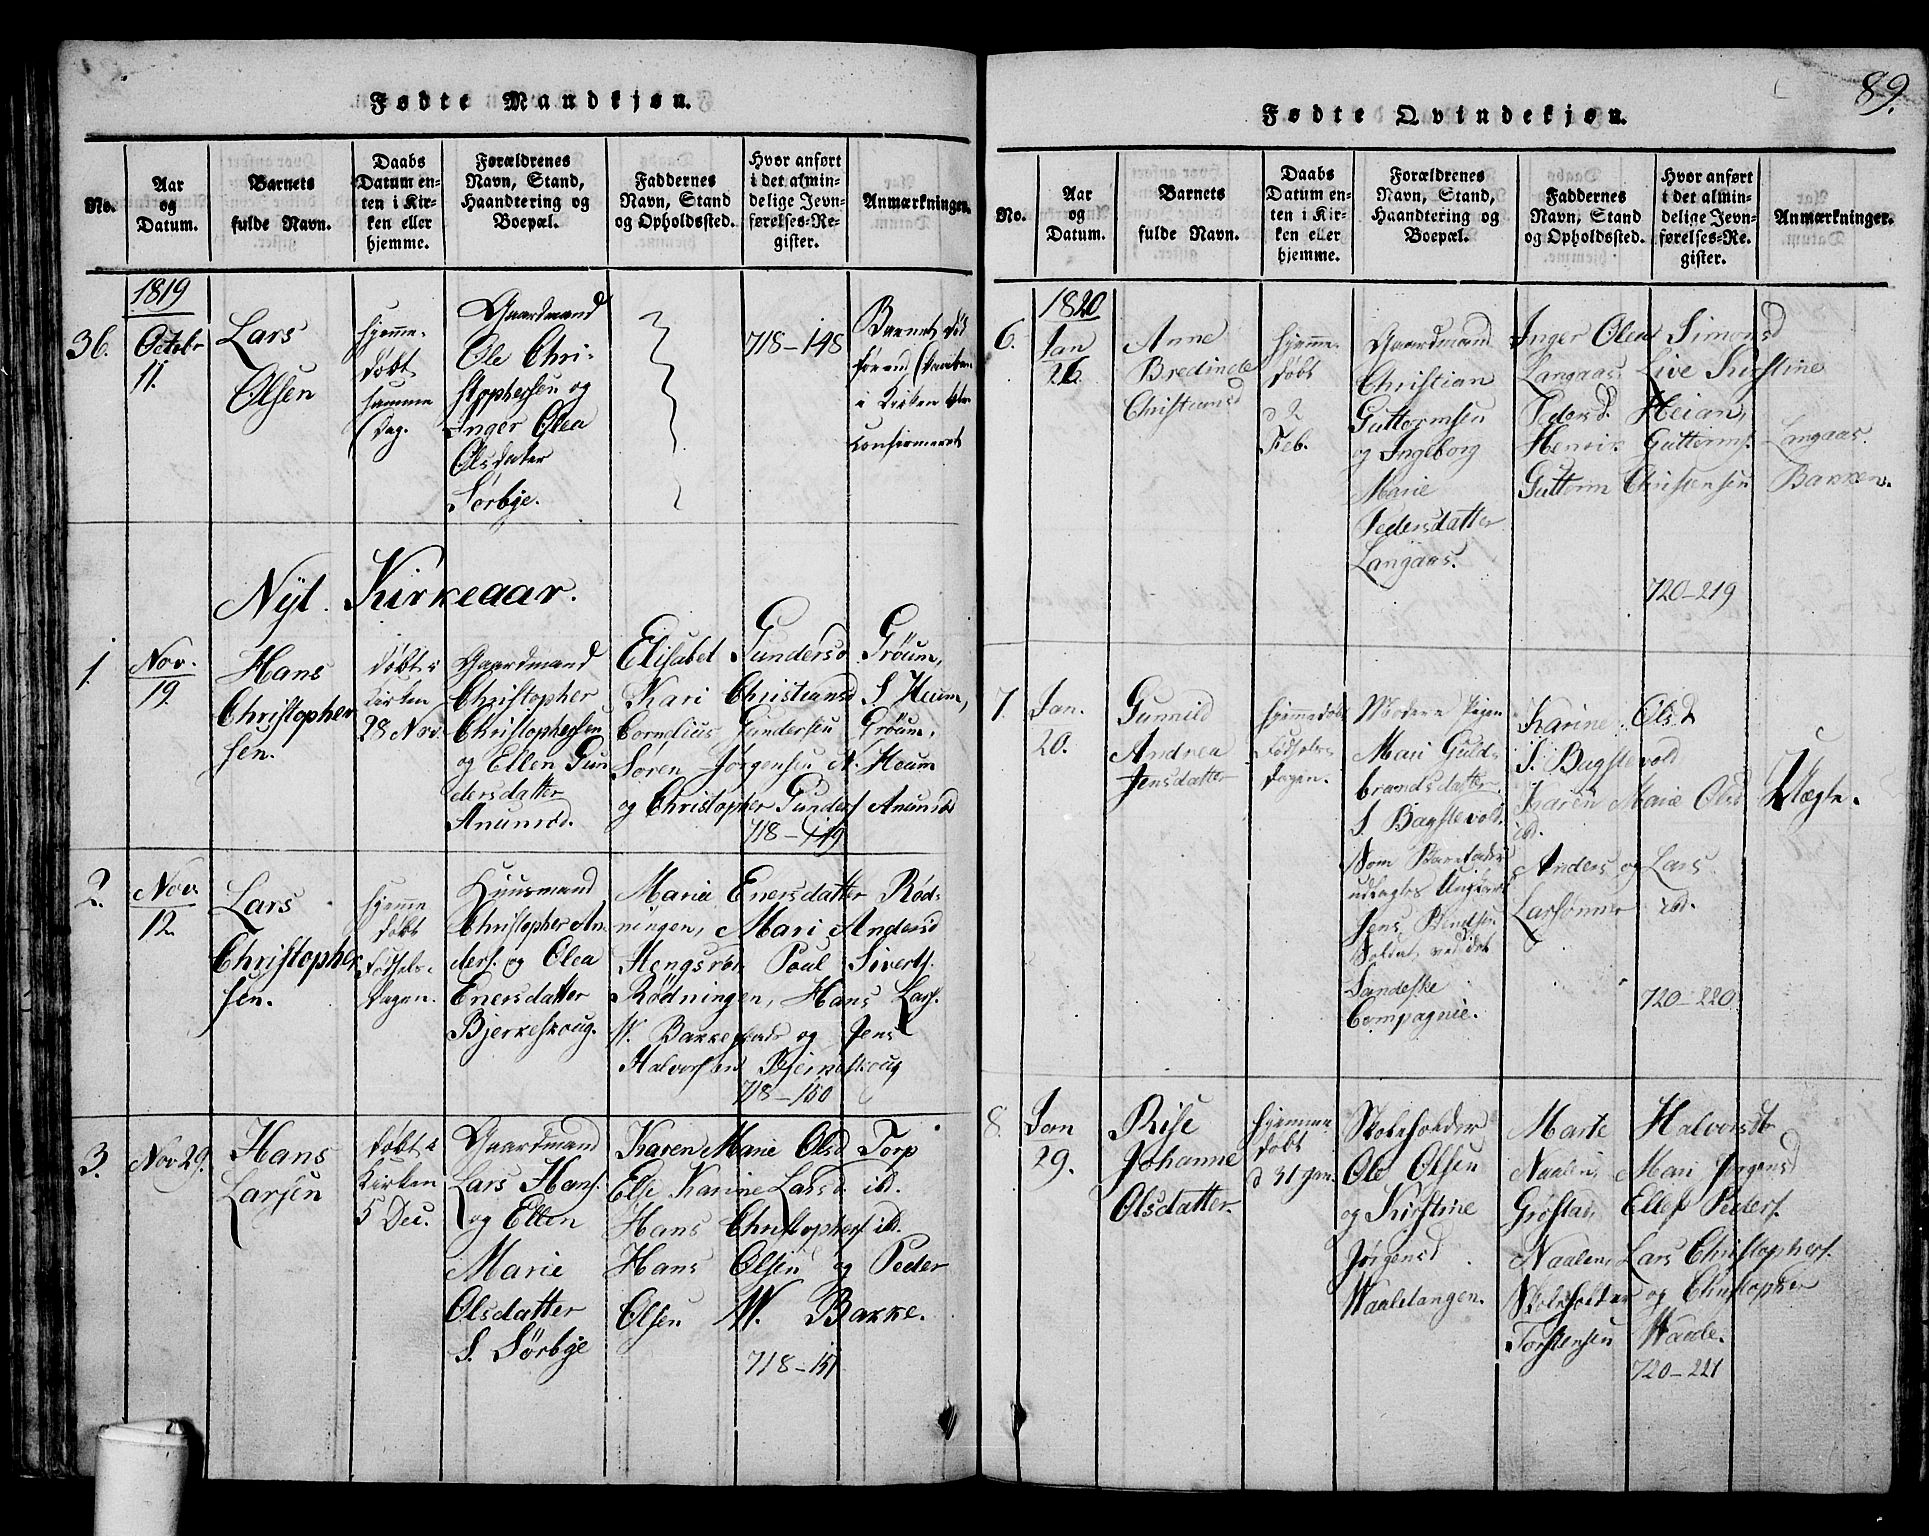 Fødte Mandkjøn.
No.
Aar
og
Datum.
Barnets
fulde Navn.
Daabs
Datum en-
ten i Kir-
ken eller
hjemme.
Forældrenes
Navn, Stand,
Haandtering og
Boepæl.
Faddernes
Navn, Stand
og Opholdssted.
Hvor anført
i det almin-
delige Jevn-
førelses-Re-
gister.
Anmærkninger.
36.
1819
Octobr
11.
Lars
Olsen
hjemme-
døbt
samme
Dag.
Gaardmand
Ole Chri-
stophersen og
Inger Olea
Olsdater
Sörbye.
718-148
Barnet død
forend Daaben
i Kirken blev
confirmeret
Nyt Kirkeaar.
1.
Nov.
19.
Hans
Christopher
sen.
døbt i
Kirken
28 Nov.
Gaardmand
Christopher
Christophersen
og Ellen Gun
dersdatter
Anumröd.
Elisabet Gundersd Gröum,
Kari Christiansd S. Heum,
Cornelius Gundersen Gröum,
Sören Jörgensen N. Heum
og Christopher Gunders. Anumröd
718-149
2.
Nov.
12.
Lars
Christopher
sen.
hjemme
døbt
Fødsels-
dagen.
Huusmand
Christopher An
ders. og Olea
Enersdatter
Bjerkeskoug.
Maria Enersdatter Röd-
ningen, Mari Andersd
Hengsrör Poul Siverts.
Rödningen, Hans Lars.
W. Bakke og Jens
Halvorsen Bjerkeskoug
718-150
3.
Nov 29.
Hans
Larsen
døbt i
Kirken
5 Dec.
Gaardmand
Lars Hans.
og Ellen
Marie
Olsdatter
S. Sörbye
Karen Marie Olsd Torp
Else Karine Larsd ibd.
Hans Christophers. ibd.
Hans Olsen og Peder
Olsen W. Bakke.
718-151
89.
Fødte Qvindekjøn.
No.
Aar
og
Datum.
Barnets
fulde Navn.
Daabs
Datum en-
ten i Kir-
ken eller
hjemme.
Forældrenes
Navn, Stand,
Haandtering og
Boepæl.
Faddernes
Navn, Stand
og Opholdssted.
Hvor anført
i det almin-
delige Jevn-
førelses-Re-
gister.
Anmærkninger.
6.
1820
Jan
26.
Anne
Bredinete
Christiansd
hjemme-
døbt
d 2
Feb.
Gaardmand
Christian
Guttormsen
og Ingeborg
Marie
Pedersdatter
Langaas.
Inger Olea Simonsd
Langaas, Live Kirstine
Pedersd. Heian,
Henrik Guttorms. Langaas.
Guttorm Christensen Bakken.
720-219
7.
Jan.
20.
Gunnild
Andrea
Jensdatter
hjemmedøbt
Fødsels-
dagen.
Moderen Pigen
Mari Guld-
brandsdatter
S. Bagstevold.
Som Barnefader
udlagdes Ungkarl
Jens
Soldat ved det
Sandeske
Compagnie.
Karine Olsd
S. Bagstevold
Karen Marie Olsd
ibd.
Anders og Lars
Larsønner ibd.
720-220
Uægte.
8.
Jan
29.
Rise
Johanne
Olsdatter
hjemme
døbt
d 31 Jan.
Skoleholder
Ole Olsen
og Kirstine
Jörgensd
Waaletangen.
Marte Halvorsdtr
Naalen, Mari Jörgensd
Gröstad, Ellef Peders.
Naalen, Lars Christophers.
Skoleholder og Christopher
Torstensen Waale.
720-221